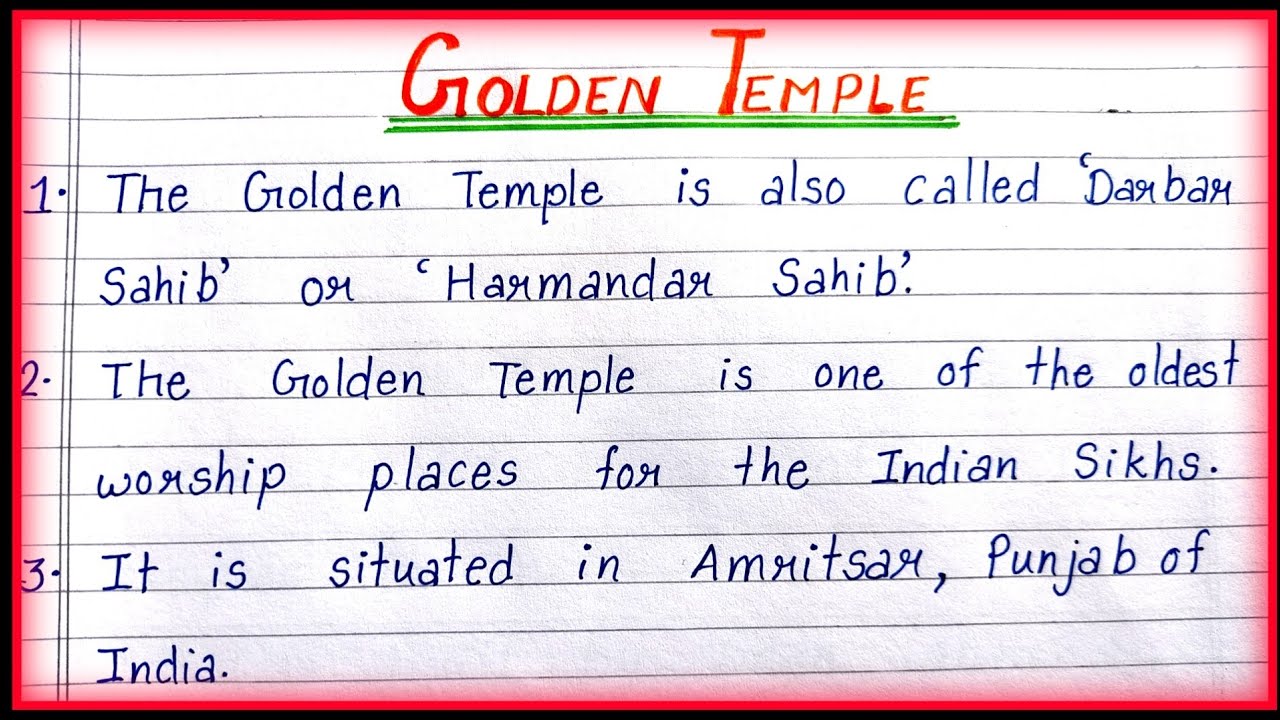 GOLDEN TEMPLE
1. The Golden Temple is also called ‘Darbar
Sahib’ or ‘Harmandar Sahib’.
2. The Golden Temple is one of the oldest
worship places for the Indian Sikhs.
3. It is situated in Amritsar, Punjab of
India.